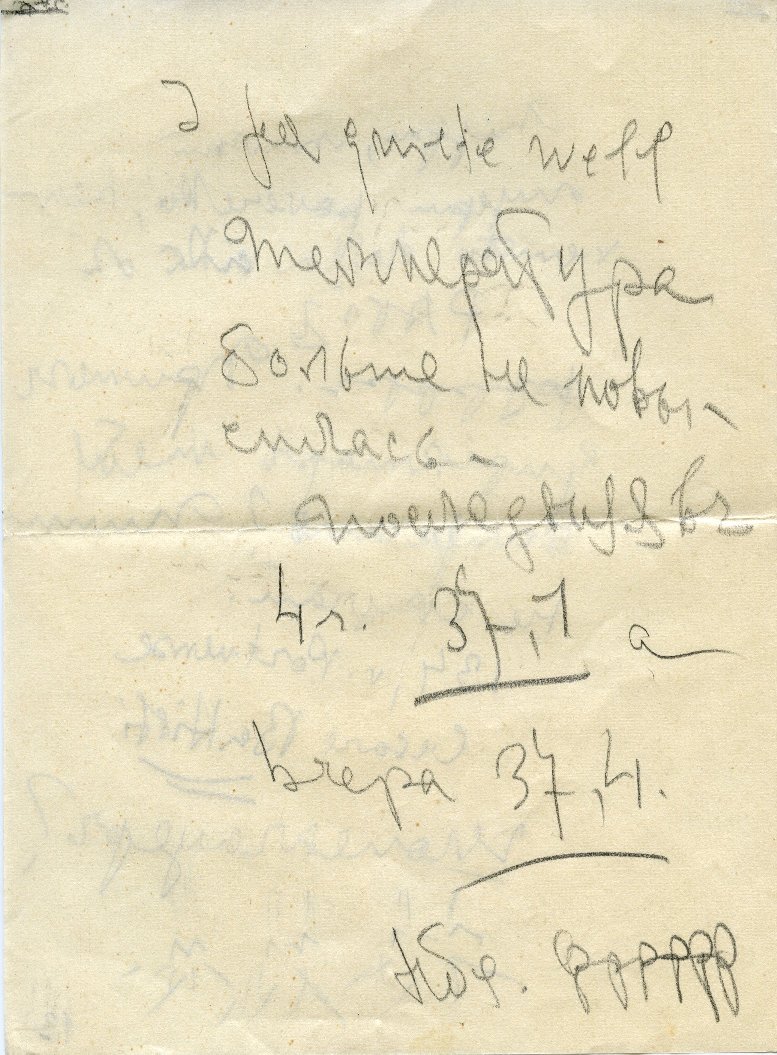 I am quite well
температура
больше не повы-
силась.
последняя въ
4 ч. 37,1 а
вчера 37,4.